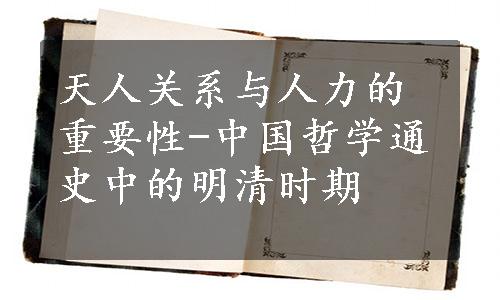 天人关系与人力的
重要性-中国哲学通
史中的明清时期